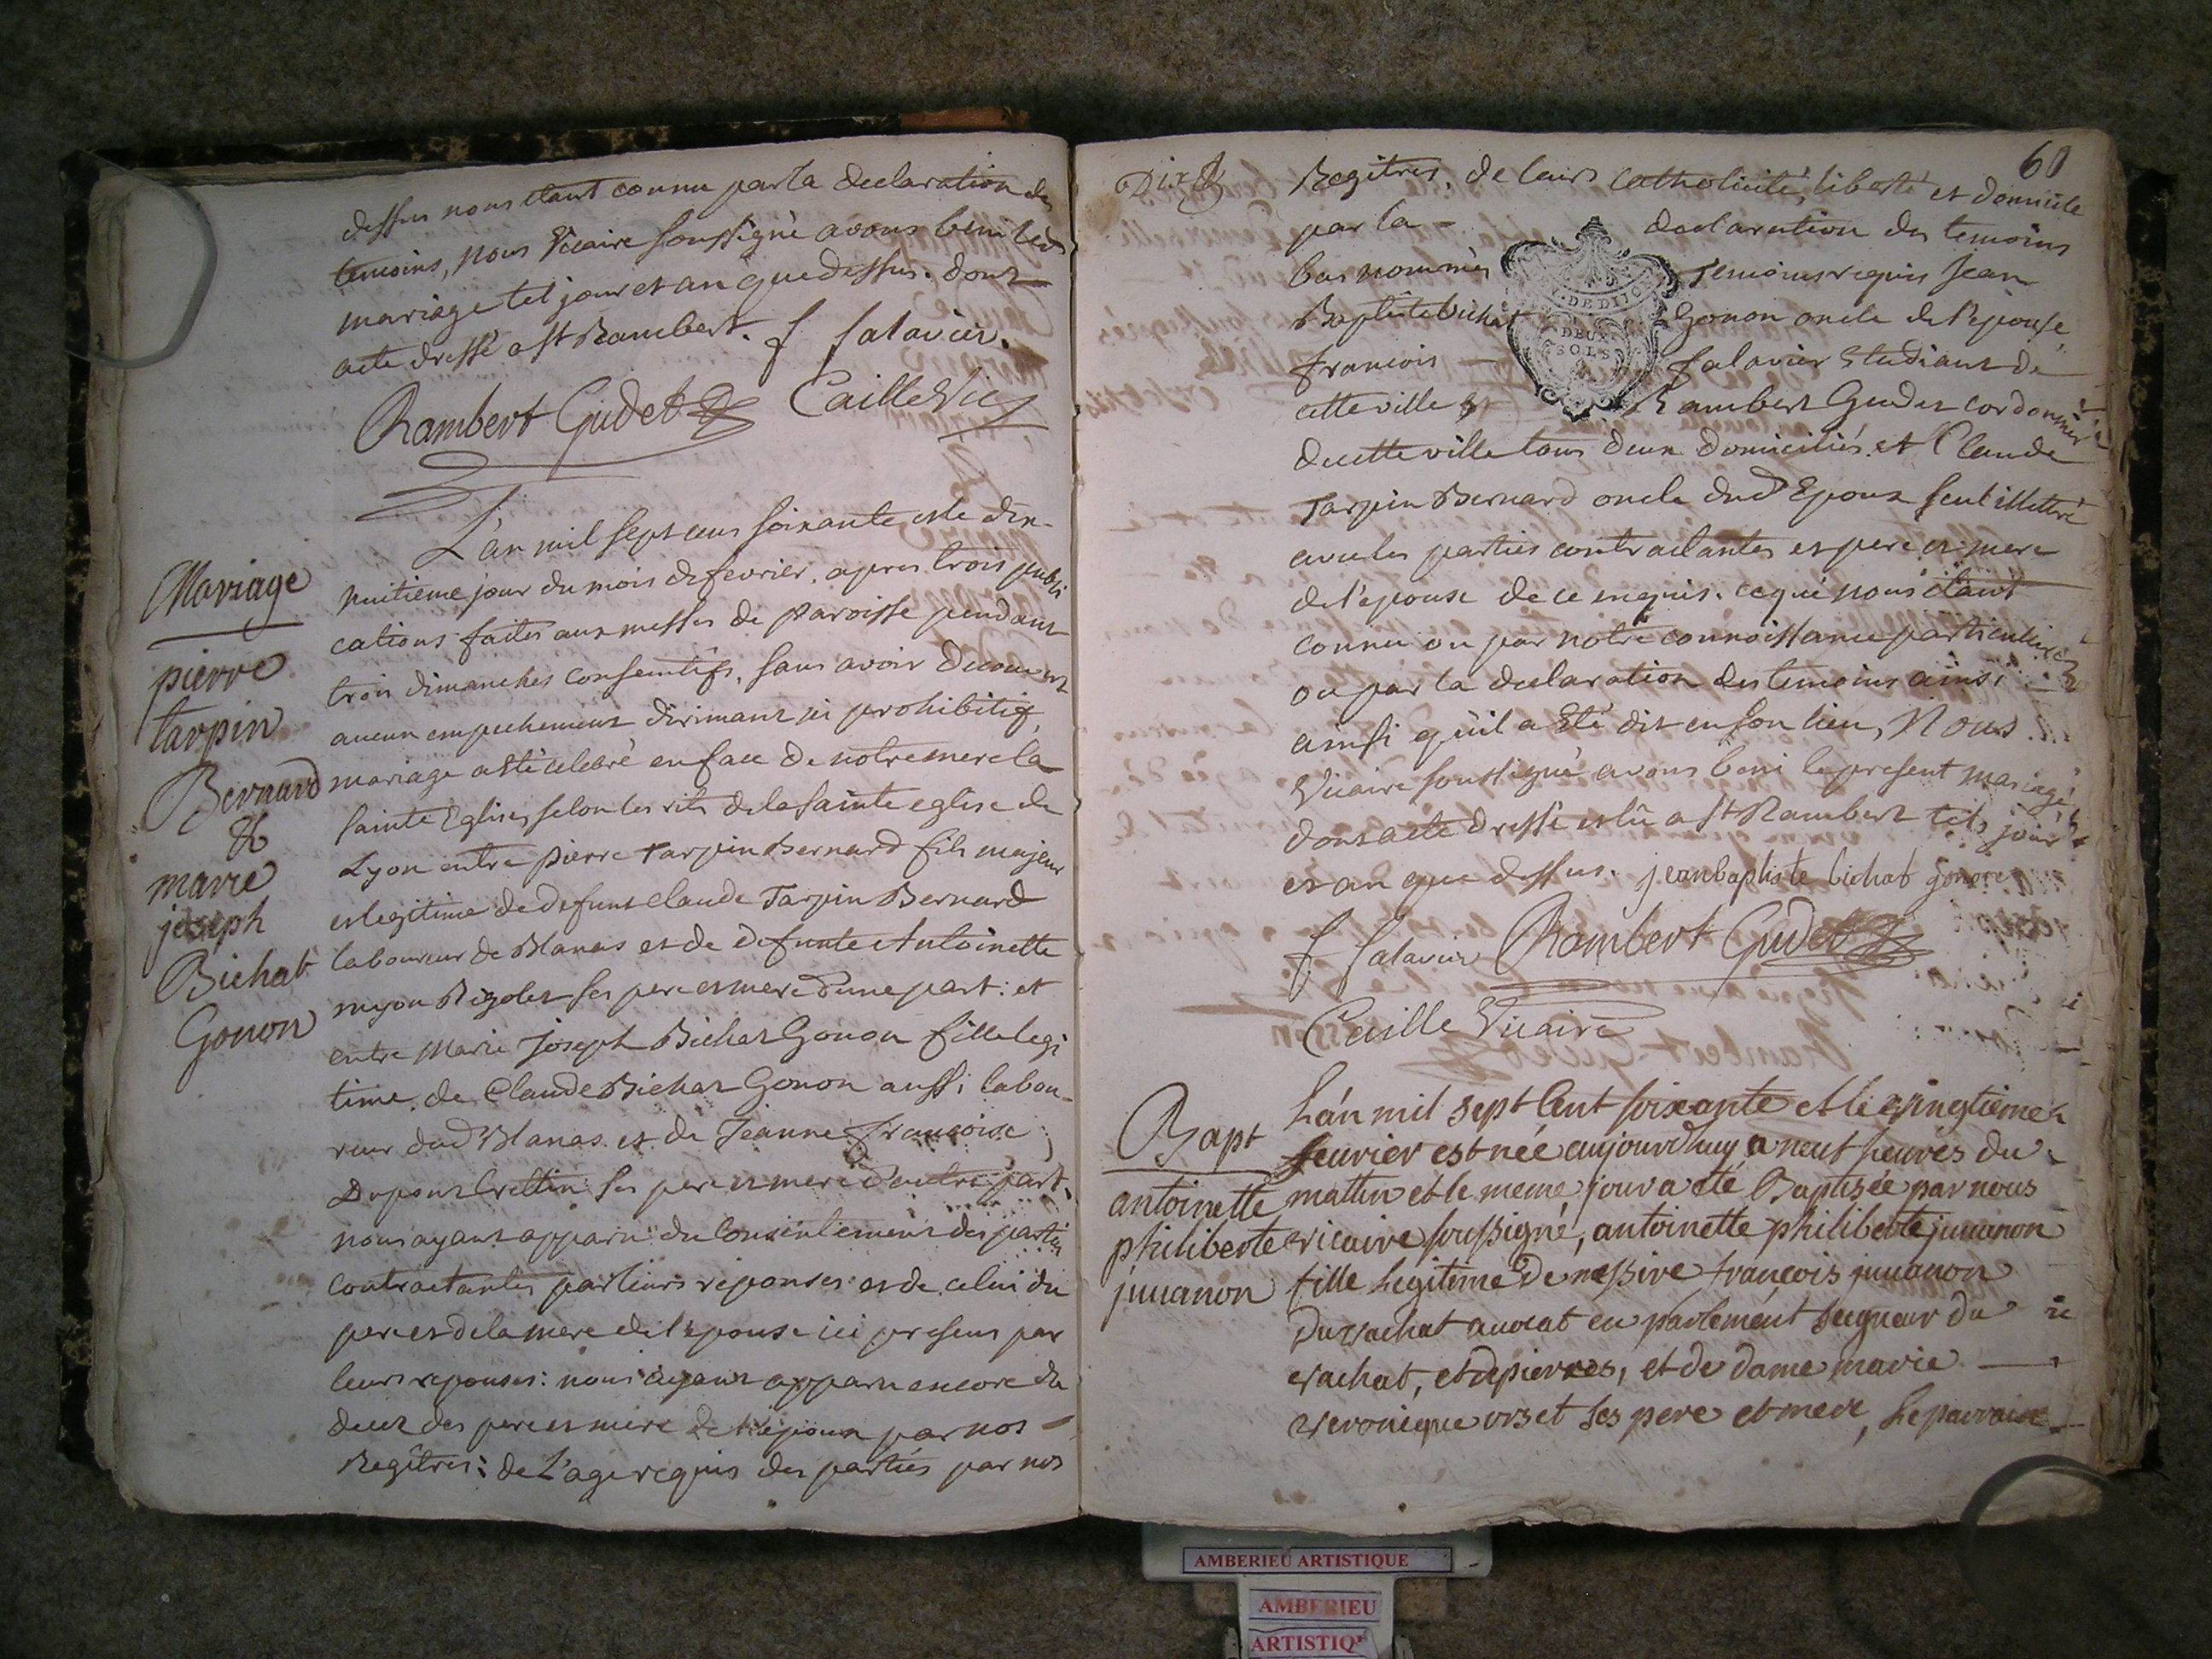 dessus nous etant connu par la declaration des
temoins, nous Vicaire soussigné avons beni led
mariage led jour et an que dessus. dont
acte dressé a St Rambert. f falavier.
Rambert Gudet Caille Vic
Mariage
pierre
tarpin
Bernard
&
marie
joseph
Bichat
Gonon
L'an mil sept cens soixante et le dix-
huitieme jour du mois de fevrier. apres trois publi
cations faites aux messes de paroisse pendant
trois dimanches consecutifs, sans avoir decouvert
aucun empechement dirimant ni prohibitif,
mariage a eté celebré en face de notre mere la
sainte Eglise, selon les rits de la sainte eglise de
Lyon entre pierre Tarpin Bernard fils majeur
et legitime de defunt claude Tarpin Bernard
laboureur de Blanas et de defunte Antoinette
Rigolet ses pere et mere d'une part: et
entre Marie Joseph Bichat Gonon fille legi
time de Claude Bichat Gonon aussi labou-
reur dud Blanas et de Jeanne francoise
Dupont Crettin ses pere et mere d'autre part.
nous ayant apparu du Consentement des parties
contractantes par leurs reponses: et de celui du
pere et de la mere de l'epouse ici presens par
leurs reponses: nous ayant apparu encore du
deces des pere et mere de l'epoux par nos
Regîtres: de L'age requis des parties par nos
60
Dix &
Regîtres. de leurs catholicité, liberté et domicile
par la - declaration des temoins
bas nommés Temoins requis Jean
Baptiste bichat Gonon oncle de l'epouse,
francois - falavier Etudiant de
cette ville et Rambert Gudet cordonnier
de cette ville tous deux domiciliés. et Claude
Tarpin Bernard oncle dud Epoux seul illettré
avec les parties contractantes et pere et mere
de l'epouse de ce enquis. ce qui nous etant
connu ou par notre connoissance particuliere
ou par la declaration des temoins ainsi
ainsi qu'il a Eté dit en son lieu, Nous
Vicaire soussigné avons beni le present mariage
dont acte dressé et lû a St Rambert led jour
et an que dessus. jean baptiste bichat gonon
f falavier Rambert Gudet
Caille Vicaire
GEN. DE DIJON
DEUX
SOLS
Bapt
antoinette
philiberte
juuanon
L'an mil sept Cent soixante et le vingtieme
feurier est née aujourdhuy a neuf heures du
mattin et le meme jour a été Baptisée par nous
vicaire soussigné, antoinette philiberte juuanon
fille Legitime de messire francois juuanon
du vachat auocat en parlement seigneur du
vachat, et depierres, et de dame marie
veronique orset ses pere et mere, Le parrain
AMBERIEU ARTISTIQUE
AMBERIEU
ARTISTIQ